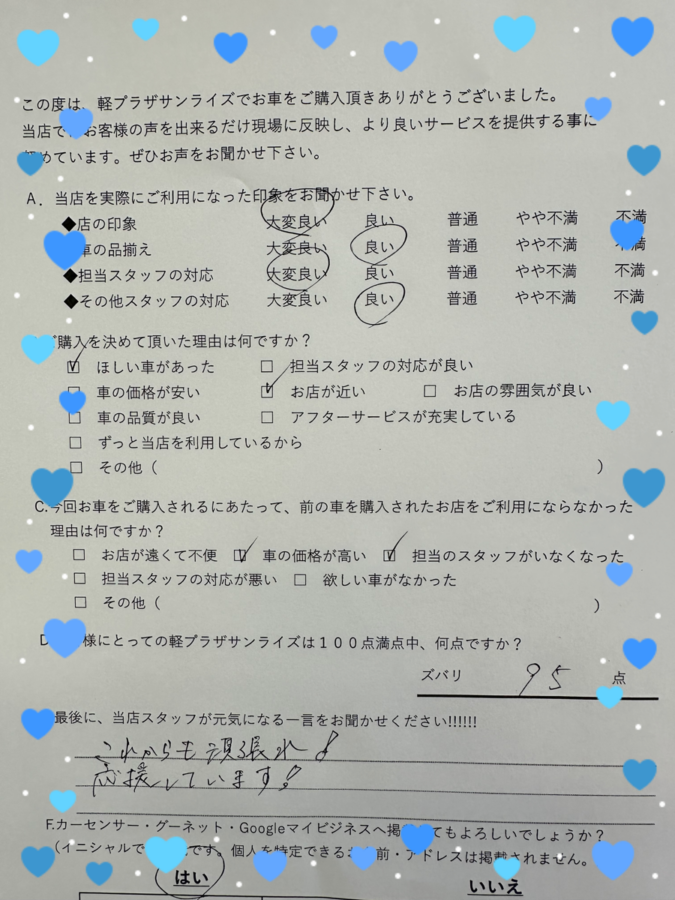 この度は、軽プラザサンライズでお車をご購入頂きありがとうございました。
当店で お客様の声を出来るだけ現場に反映し、より良いサービスを提供する事に
めています。ぜひお声をお聞かせ下さい。
A．当店を実際にご利用になった印象をお聞かせ下さい。
◆店の印象 大変良い 良い 普通 やや不満 不満
車の品揃え 大変良い 良い 普通 やや不満 不満
◆担当スタッフの対応 大変良い 良い 普通 やや不満 不満
◆その他スタッフの対応 大変良い 良い 普通 やや不満 不満
購入を決めて頂いた理由は何ですか？
☑ ほしい車があった □ 担当スタッフの対応が良い
□ 車の価格が安い ☑ お店が近い □ お店の雰囲気が良い
□ 車の品質が良い □ アフターサービスが充実している
□ ずっと当店を利用しているから
□ その他（ ）
C.今回お車をご購入されるにあたって、前の車を購入されたお店をご利用にならなかった
理由は何ですか？
□ お店が遠くて不便 ☑ 車の価格が高い ☑ 担当のスタッフがいなくなった
□ 担当スタッフの対応が悪い □ 欲しい車がなかった
□ その他（ ）
D 様にとっての軽プラザサンライズは１００点満点中、何点ですか？
ズバリ 95 点
最後に、当店スタッフが元気になる一言をお聞かせください!!!!!!
これからも頑張れ!
応援しています!
F.カーセンサー・グーネット・Googleマイビジネスへ掲 てもよろしいでしょうか？
（イニシャルで です。個人を特定できるお 前・アドレスは掲載されません。
はい いいえ